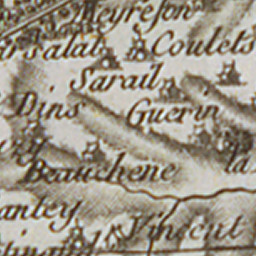 Meyreson
Coulets
Sarail
Dins Guerin
Beauchene la
Vincent